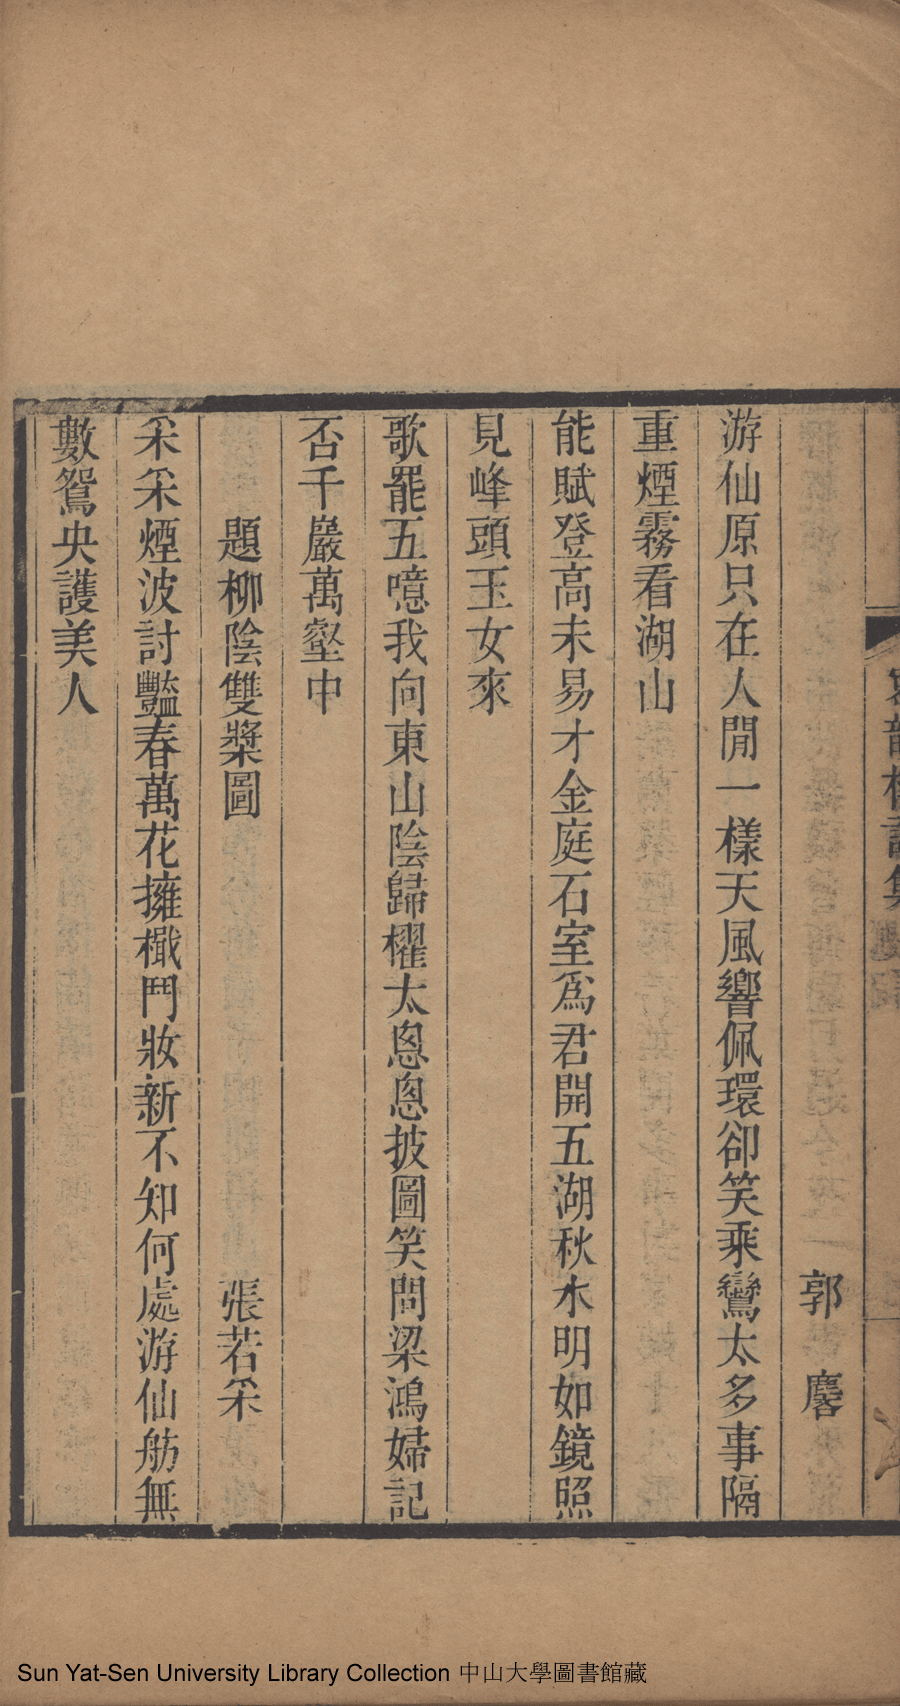 郭 麐
游仙原只在人閒一樣天風響佩環卻笑乘鸞太多事隔
重煙霧看湖山
能賦登高未易才金庭石室爲君開五湖秋水明如鏡照
見峰頭玉女來
歌罷五噫我向東山陰歸櫂太悤悤披圖笑問梁鴻婦記
否千巖萬壑中
題柳陰雙槳圖 張若采
采采煙波討豔春萬花擁檝鬥妝新不知何處游仙舫無
數鴛央護美人
Sun Yat-Sen University Library Collection 中山大學圖書館藏